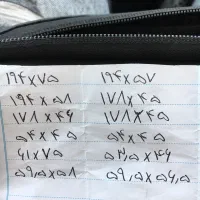 ۱۹۴×۷۵ ۱۹۴×۵۷
۱۹۴×۵۸ ۱۷۸×۴۵
۱۷۸×۴۶ ۱۷۸×۴۶
۵۴×۴۵ ۵۴×۴۵
۶۱×۷۵ ۵۳۵×۴۶
۵۹٫۵×۵۸ ۵۹٫۵×۵۶٫۵